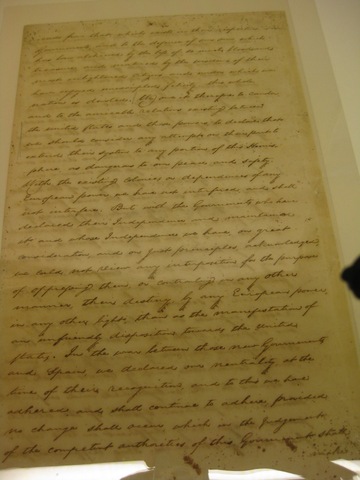 from that which exists in their respective
Governments. And to the defence of our own, which
has been achieved by the loss of so much blood and
treasure, and matured by the wisdom of their
most enlightened citizens, and under which we
have enjoyed unexampled felicity, this whole
nation is devoted. We owe it therefore to candor
and to the amicable relations existing between
the United States and those powers to declare that
we should consider any attempt on their part to
extend their system to any portion of this Hemis
phere as dangerous to our peace and safety.
With the existing Colonies or dependencies of any
European power we have not interfered and shall
not interfere. But with the Governments who have
declared their Independence, and maintained
it, and whose Independence we have, on great
consideration, and on just principles, acknowledged,
we could not view any interposition for the purpose
of oppressing them, or controling in any other
manner, their destiny by any European power,
in any other light, than as the manifestation of
an unfriendly disposition towards the United
States. In the war between those new Governments
and Spain, we declared our neutrality at the
time of their recognition, and to this we have
adhered, and shall continue to adhere, provided
no change shall occur which in the Judgement
of the competent authorities of this Government shall
make